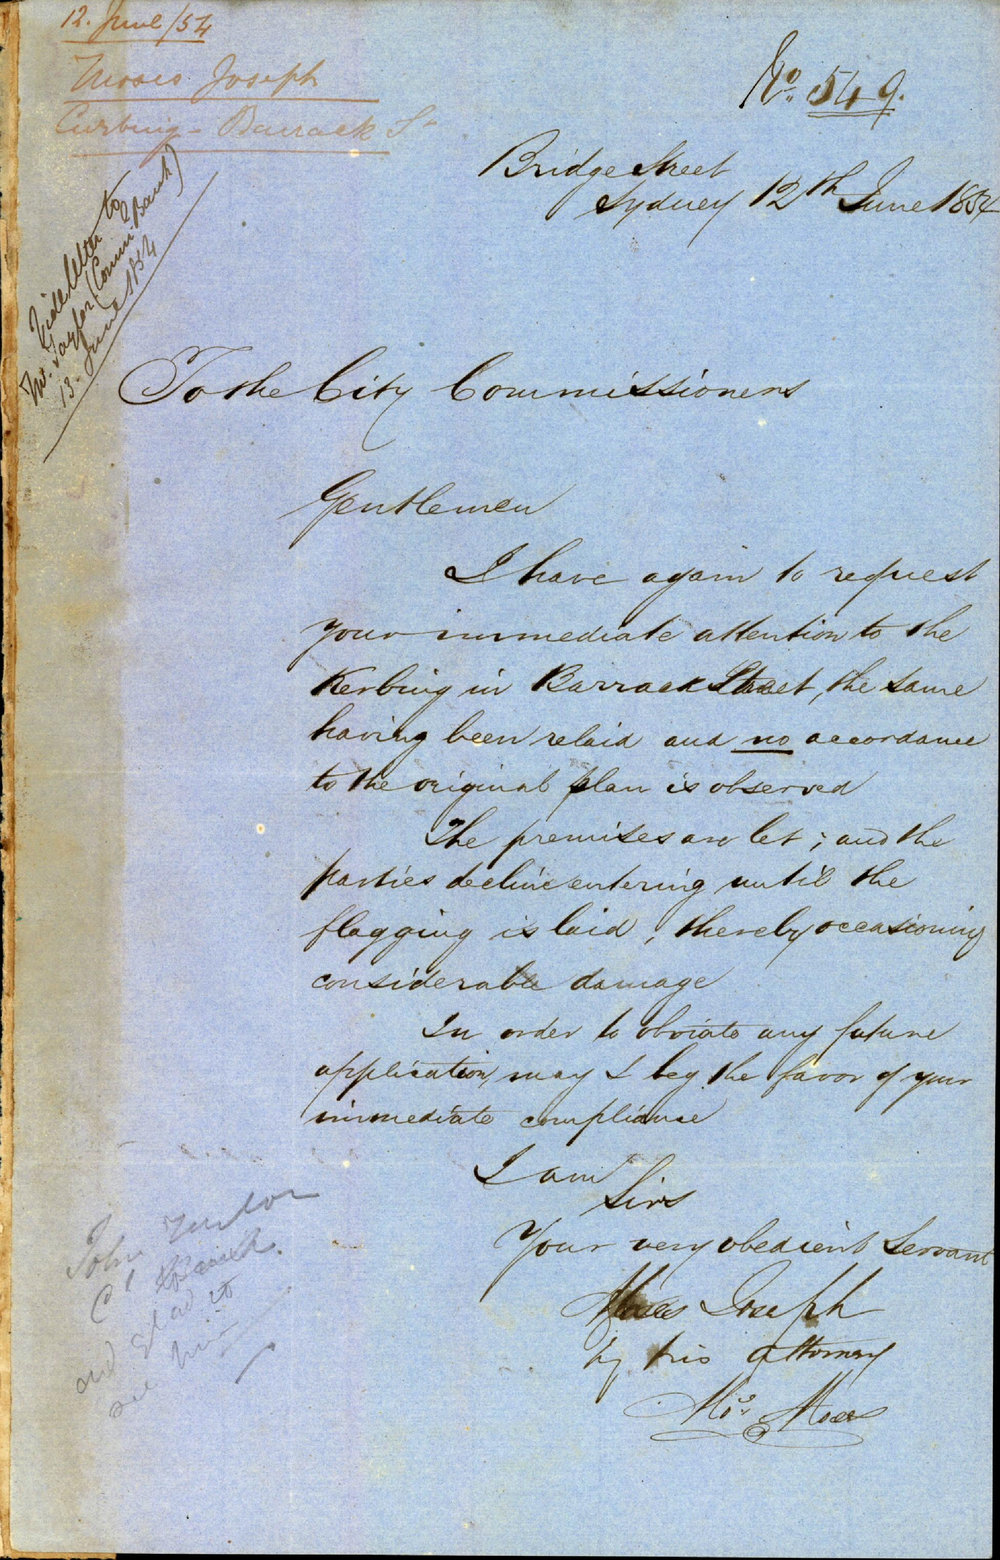 12. June/54
Moses Joseph
Curbing - Barrack St
No. 549.
Bridge Street
Sydney 12th June 1854
Vide letter to
Mr. Taylor (Comm. Bank)
13. June 1854
To the City Commissioners
Gentlemen
I have again to request
your immediate attention to the
Kerbing in Barrack Street, the same
having been relaid and no accordance
to the original plan is observed
The premises are let; and the
parties decline entering until the
flagging is laid, thereby occasioning
considerable damage
In order to obviate any future
application, may I beg the favor of your
immediate compliance
I am
Sirs
Your very obedient Servant
Moses Joseph
by his attorney
Mos. Moses
John
Cl Bank
and glad to
see him